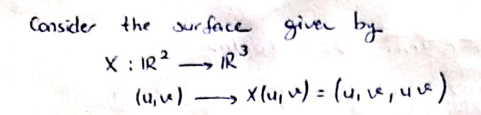 Consider the surface given by
X : ℝ² → ℝ³
(u,v) → X(u,v) = (u, v, uv)